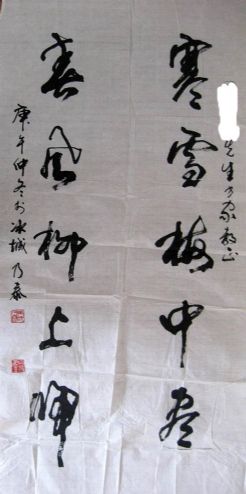 先生方家教正
寒雪梅中尽
春风柳上归
庚午仲冬于冰城乃泰